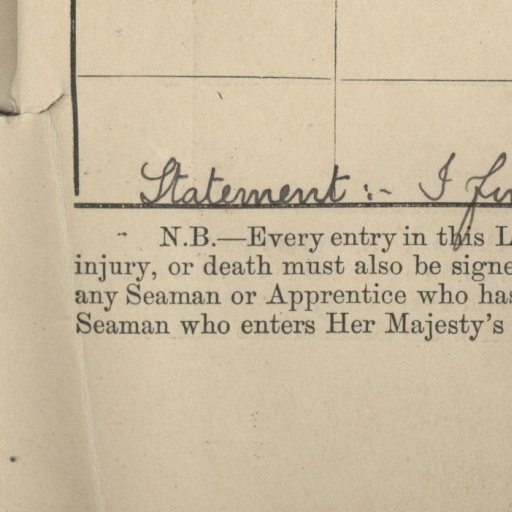 Statement :- I
N.B.—Every entry in this L
injury, or death must also be signe
any Seaman or Apprentice who has
Seaman who enters Her Majesty's